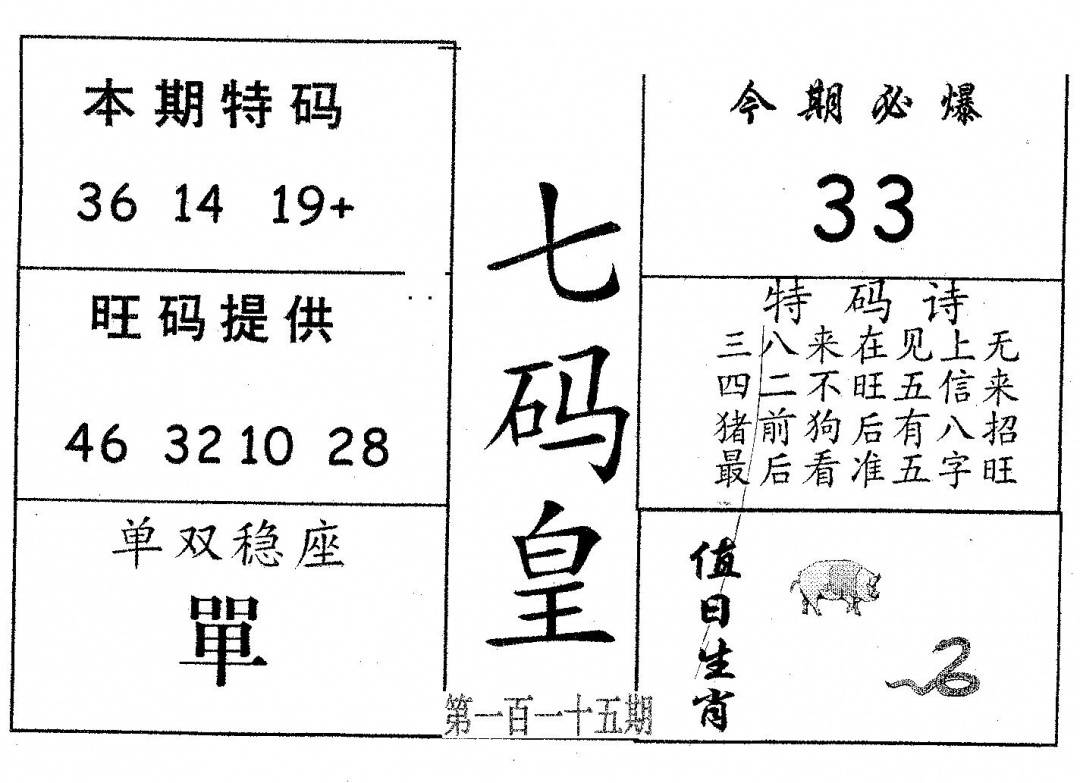 本期特码
36 14 19+
旺码提供
46 32 10 28
单双稳座
單
七码皇
第一百一十五期
今期必爆
33
特码诗
三八来在见上无
四二不旺五信来
猪前狗后有八招
最后看准五字旺
值日生肖